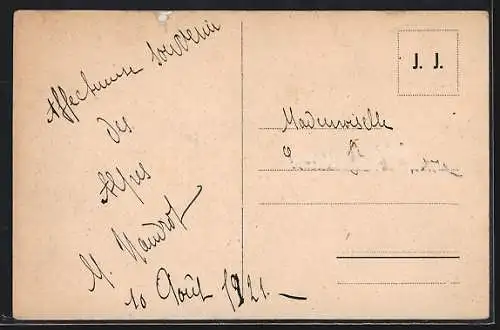 Affectueux souvenir
des
Alpes
M.
10 Août 1921 —
J. J.
Mademoiselle